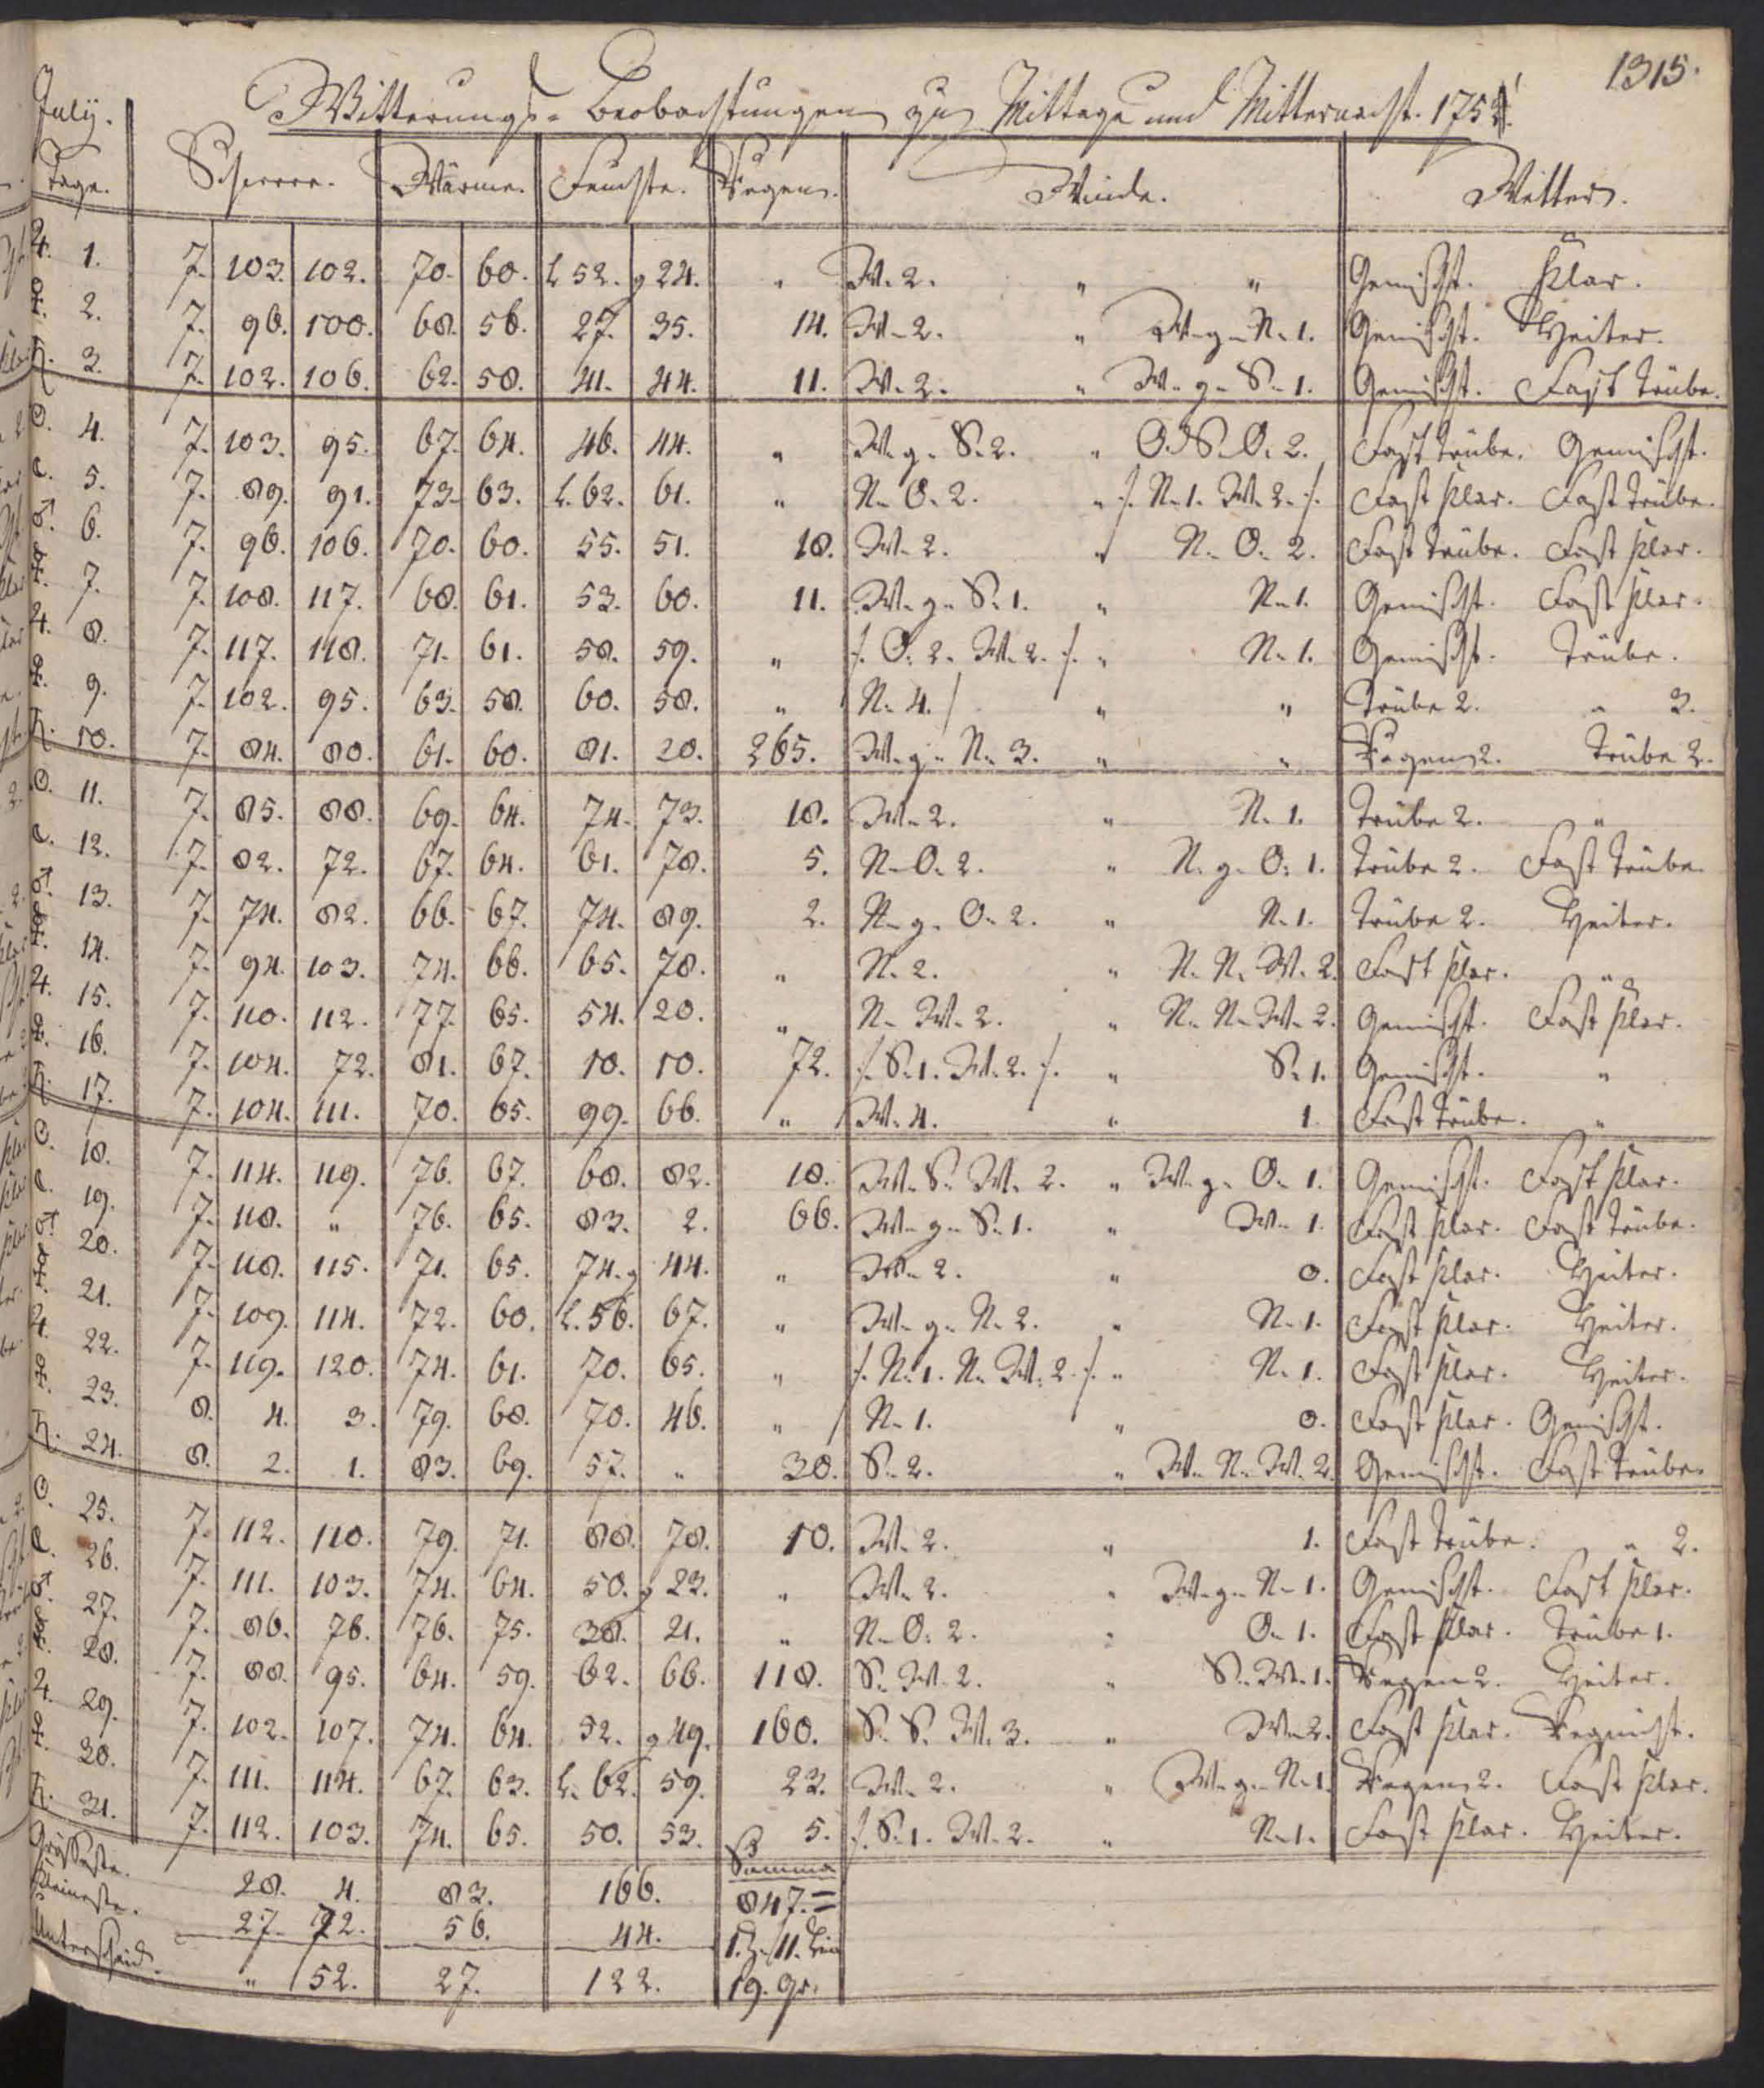 1315.
July. Witterungs-Beobachtungen zu Mittage und Mitternacht. 175
Tage. Schwere. Wärme. Feuchte. Regen. Winde. Witter.
♃. 1. 7. 103. 102. 70. 60. L 52. g 24. " W. 2. " " Gemischt. klar.
♀. 2. 7. 98. 100. 68. 56. 27. 35. 14. W. 2. " W. g. N. 1. Gemischt. Heiter.
♄. 3. 7. 102. 106. 62. 58. 41. 44. 11. W. 2. " W. g. S. 1. Gemischt. Fast trübe.
☉. 4. 7. 103. 95. 67. 64. 46. 44. " W. g. S. 2. " O. S. O. 2. Fast trübe. Gemischt.
☾. 5. 7. 89. 91. 73. 63. L. 62. 61. " N. O. 2. " /. N. 1. W. 2. /. Fast klar. Fast trübe.
♂. 6. 7. 98. 106. 70. 60. 55. 51. 18. W. 2. " N. O. 2. Fast trübe. Fast klar.
☿. 7. 7. 108. 117. 68. 61. 53. 60. 11. W. g. S. 1. " N. 1. Gemischt. Fast klar.
♃. 8. 7. 117. 118. 71. 61. 58. 59. " /. O. 2. W. 2. /. " N. 1. Gemischt. Trübe.
♀. 9. 7. 102. 95. 63. 58. 60. 58. " N. 4. " " Trübe 2. " 3.
♄. 10. 7. 84. 80. 61. 60. 81. 20. 265. W. g. N. 3. " " Regen 2. Trübe 2.
☉. 11. 7. 85. 88. 69. 64. 74. 73. 18. W. 2. " N. 1. Trübe 2. "
☾. 12. 7. 82. 72. 67. 64. 61. 78. 5. N. O. 2. " N. g. O. 1. Trübe 2. Fast trübe.
♂. 13. 7. 74. 82. 66. 67. 74. 89. 2. N. g. O. 2. " N. 1. Trübe 2. Heiter.
☿. 14. 7. 94. 103. 74. 66. 65. 78. " N. 2. " N. N. W. 2. Fast klar. "
♃. 15. 7. 110. 112. 77. 65. 54. 20. " N. W. 2. " N. N. W. 2. Gemischt. Fast klar.
♀. 16. 7. 104. 72. 81. 67. 10. 10. 72. /. S. 1. W. 2. /. " S. 1. Gemischt. "
♄. 17. 7. 104. 111. 70. 65. 99. 66. " W. 4. " 1. Fast trübe. "
☉. 18. 7. 114. 119. 76. 67. 68. 82. 18. W. S. W. 2. " W. g. O. 1. Gemischt. Fast klar.
☾. 19. 7. 118. " 76. 65. 83. 2. 66. W. g. S. 1. " W. 1. Fast klar. Fast trübe.
♂. 20. 7. 118. 115. 71. 65. 74. g 44. " W. 2. " 0. Fast klar. Heiter.
☿. 21. 7. 109. 114. 72. 60. L. 56. 67. " W. g. N. 2. " N. 1. Fast klar. Heiter.
♃. 22. 7. 119. 120. 74. 61. 70. 65. " /. N. 1. N. W. 2. /. " N. 1. Fast klar. Heiter.
♀. 23. 8. 4. 3. 79. 68. 70. 46. " N. 1. " 0. Fast klar. Gemischt.
♄. 24. 8. 2. 1. 83. 69. 57. " 30. S. 2. " W. N. W. 2. Gemischt. Fast trübe.
☉. 25. 7. 112. 110. 79. 71. 88. 78. 10. W. 2. " 1. Fast trübe. " 2.
☾. 26. 7. 111. 103. 74. 64. 50. g 23. " W. 2. " W. g. N. 1. Gemischt. Fast klar.
♂. 27. 7. 86. 76. 76. 75. 38. 21. " N. O. 2. " O. 1. Fast klar. Trübe 1.
☿. 28. 7. 88. 95. 64. 59. 62. 66. 118. S. W. 2. " S. W. 1. Regen 2. Heiter.
♃. 29. 7. 102. 107. 74. 64. 52. g 49. 160. S. S. W. 3. " W. 2. Fast klar.
♀. 30. 7. 111. 114. 67. 63. L. 62. 59. 23. W. 2. " W. g. N. 1. Regen 2. Fast klar.
♄. 31. 7. 112. 103. 74. 65. 50. 53. 5. /. S. 1. W. 2. " N. 1. Fast klar. Heiter.
Größeste. 28. 4. 83. 166. Summa
Kleineste. 27. 72. 56. 44. 847. =
Unterscheid. " 52. 27. 122. 1. Z. 11. Lin
19. gr.